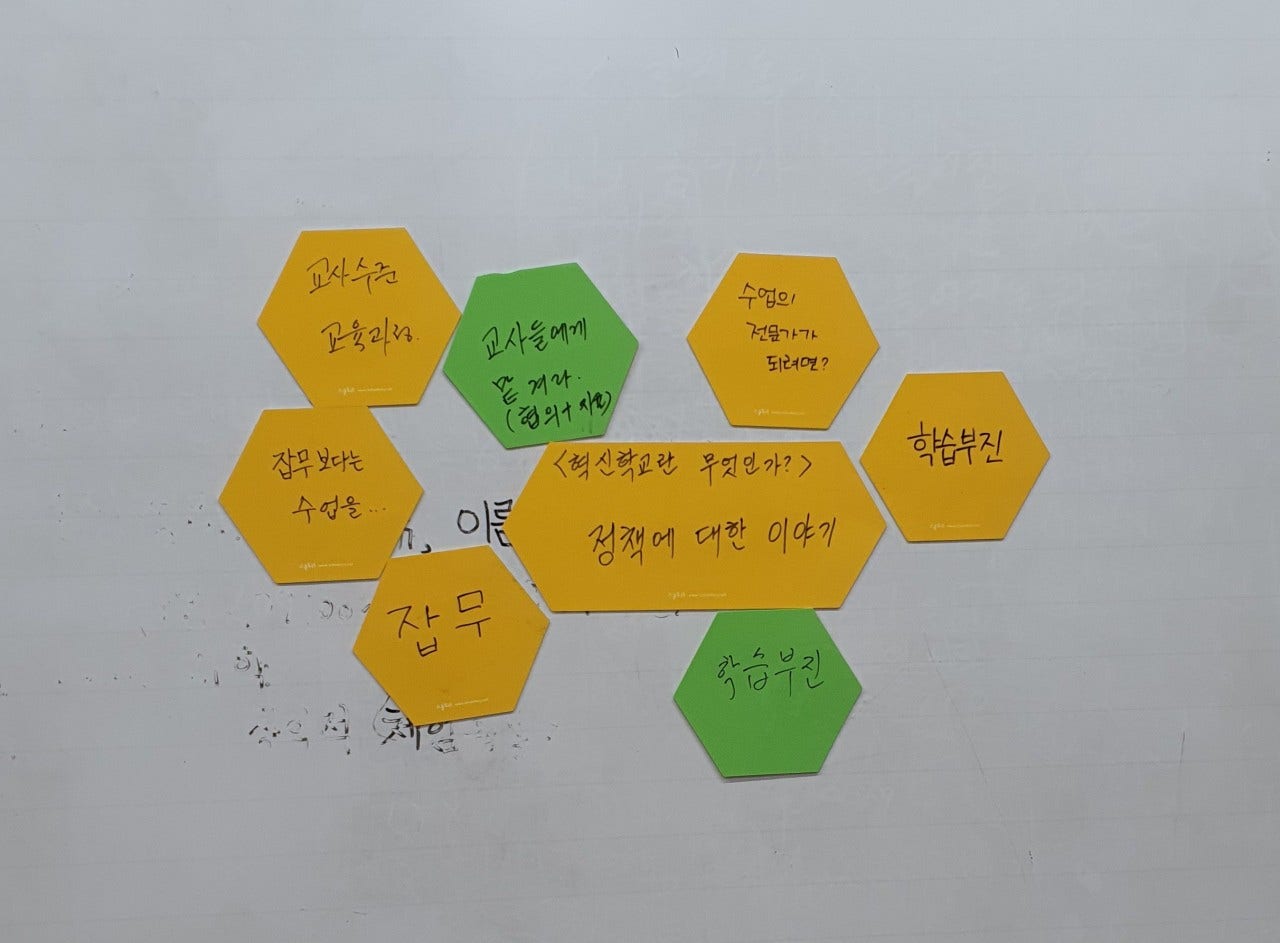 교사수준
교육과정.
교사들에게
맡겨라.
(협의+지원)
수업의
전문가가
되려면?
학습부진
잡무보다는
수업을...
<혁신학교란 무엇인가?>
정책에 대한 이야기
이름
잡무
학습부진
체험